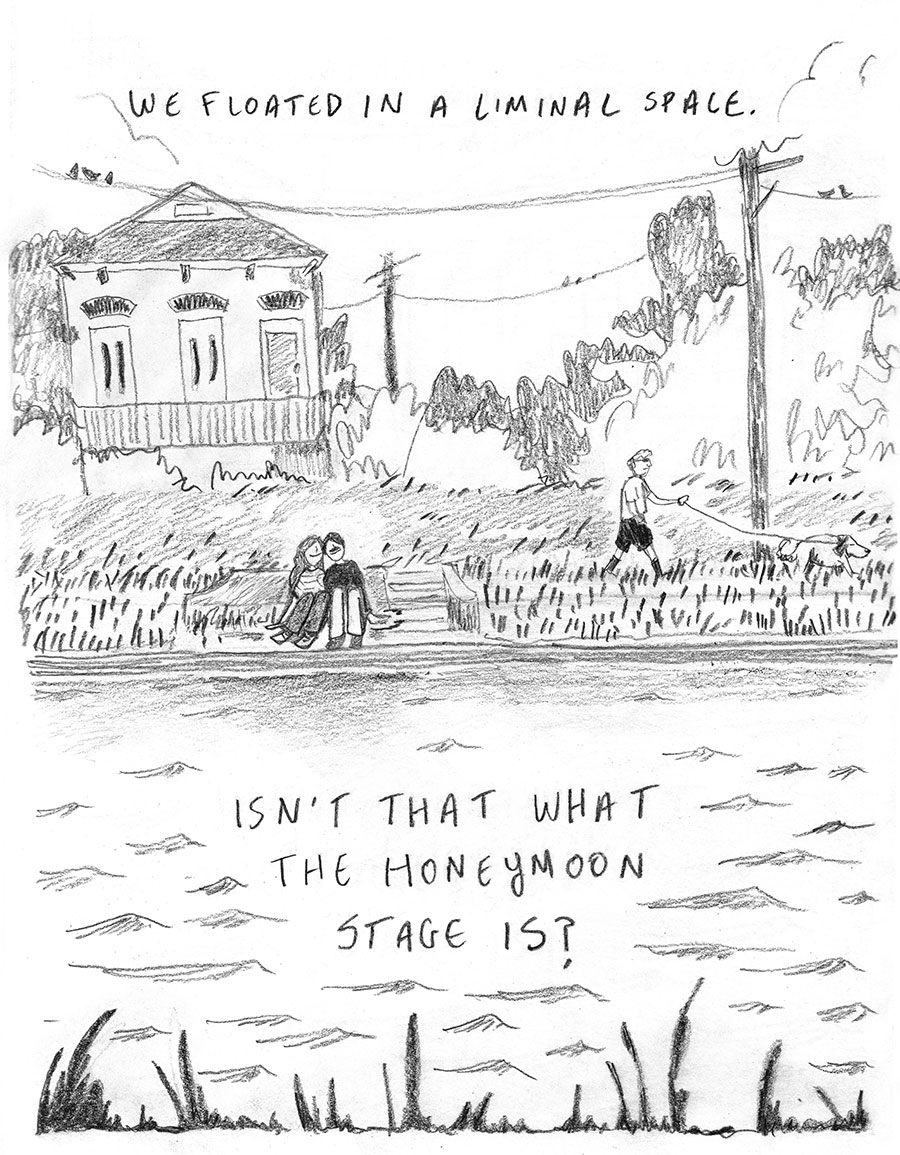 WE FLOATED IN A LIMINAL SPACE.
ISN'T THAT WHAT
THE HONEYMOON
STAGE IS?